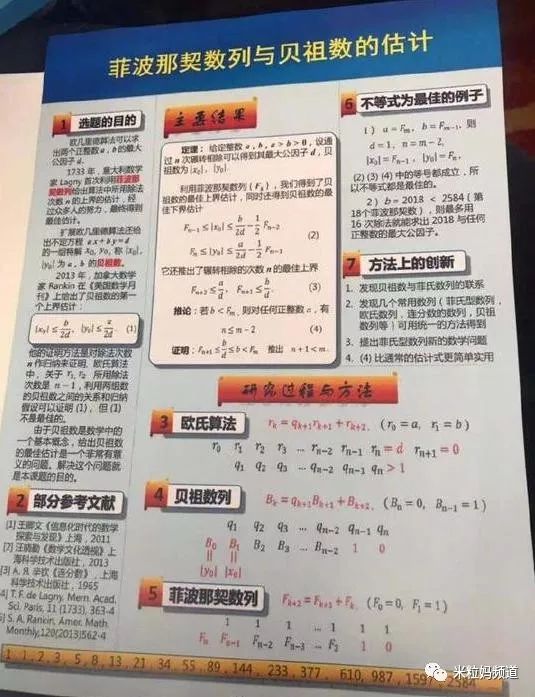 菲波那契数列与贝祖数的估计
1 选题的目的
欧几里德算法可以求
出两个正整数 a, b 的最大
公因子 d.
1733 年, 意大利数学
家 Lagny 首次利用菲波那
契数列给出算法中所用除法
次数 n 的上界的估计, 经
过众多人的努力, 最终得到
最佳估计。
扩展欧几里德算法还给
出不定方程 ax + by = d
的一组特解 x₀, y₀, 称 |x₀|,
|y₀| 为 a, b 的贝祖数。
2013 年, 加拿大数学
家 Rankin 在《美国数学月
刊》上给出了贝祖数的第一
个上界估计:
|x₀| ≤ b/2d, |y₀| ≤ a/2d. (1)
他的证明方法是对除法次数
n 作归纳来证明. 欧氏算法
中, 关于 r₁, r₂ 所用除法
次数是 n − 1, 利用两组数
的贝祖数之间的关系和归纳
假设可以证明 (1), 但 (1)
不是最佳的。
由于贝祖数是数学中的
一个基本概念, 给出贝祖数
的最佳估计是一个非常有意
义的问题。解决这个问题就
是本课题的目的。
2 部分参考文献
[1] 王卿文《信息化时代的数学
探索与发现》上海, 2011
王晓勤《数学文化透视》上
海科学技术出版社, 2013
[3] A. Я. 辛钦《连分数》, 上海
科学技术出版社, 1965
4] T. F. de Lagny. Mem. Acad.
Sci. Paris, 11 (1733), 363-4
5] S. A. Rankin, Amer. Math.
Monthly,120(2013)562-4
主要结果
定理: 给定整数 a, b, a > b > 0, 设通
过 n 次辗转相除可以得到其最大公因子 d, 贝
祖数为 |x₀|, |y₀|.
利用菲波那契数列 {Fₖ}, 我们得到了贝
祖数的最佳上界估计, 同时还得到贝祖数的最
佳下界估计
Fₙ₋₁ ≤ |x₀| ≤ b/2d − 1/2 Fₙ₋₂
(2)
Fₙ ≤ |y₀| ≤ a/2d − 1/2 Fₙ₋₁
它还推出了辗转相除的次数 n 的最佳上界
Fₙ₊₂ ≤ a/d, Fₙ₊₁ ≤ b/d. (3)
推论: 若 b < Fₘ, 则对任何正整数 a, 有
n ≤ m − 2 (4)
证明: Fₙ₊₁ ≤ b/d ≤ b < Fₘ 推出 n + 1 < m.
6 不等式为最佳的例子
1) a = Fₘ, b = Fₘ₋₁, 则
d = 1, n = m − 2,
|x₀| = Fₙ₋₁, |y₀| = Fₙ.
(2) (3) (4) 中的等号都成立, 所
以不等式都是最佳的。
2) b = 2018 < 2584 (第
18个菲波那契数), 则最多用
16 次除法就能求出 2018 与任何
正整数的最大公因子。
7 方法上的创新
1. 发现贝祖数与菲氏数列的联系
2. 发现几个常用数列 (菲氏型数列,
欧氏数列, 连分数的数列, 贝祖
数列等) 可用统一的方法得到
3. 提出菲氏型数列新的数学问题
4. (4) 比通常的估计式更简单实用
研究过程与方法
3 欧氏算法 rₖ = qₖ₊₁rₖ₊₁ + rₖ₊₂, (r₀ = a, r₁ = b)
r₀ r₁ r₂ r₃ ... rₙ₋₂ rₙ₋₁ rₙ = d rₙ₊₁ = 0
q₁ q₂ q₃ ... qₙ₋₂ qₙ₋₁ qₙ > 1
4 贝祖数列 Bₖ = qₖ₊₁Bₖ₊₁ + Bₖ₊₂, (Bₙ = 0, Bₙ₋₁ = 1)
q₁ q₂ q₃ ... qₙ₋₂ qₙ₋₁ qₙ
B₀ B₁ B₂ B₃ ... Bₙ₋₂ 1 0
|| ||
|y₀| |x₀|
5 菲波那契数列 Fₖ₊₂ = Fₖ₊₁ + Fₖ, (F₀ = 0, F₁ = 1)
1 1 1 ... 1 1 1
Fₙ Fₙ₋₁ Fₙ₋₂ Fₙ₋₃ ... F₂ 1 0
1, 1, 2, 3, 5, 8, 13, 21, 34, 55, 89, 144, 233, 377, 610, 987, 1597, 2584
米粒妈频道